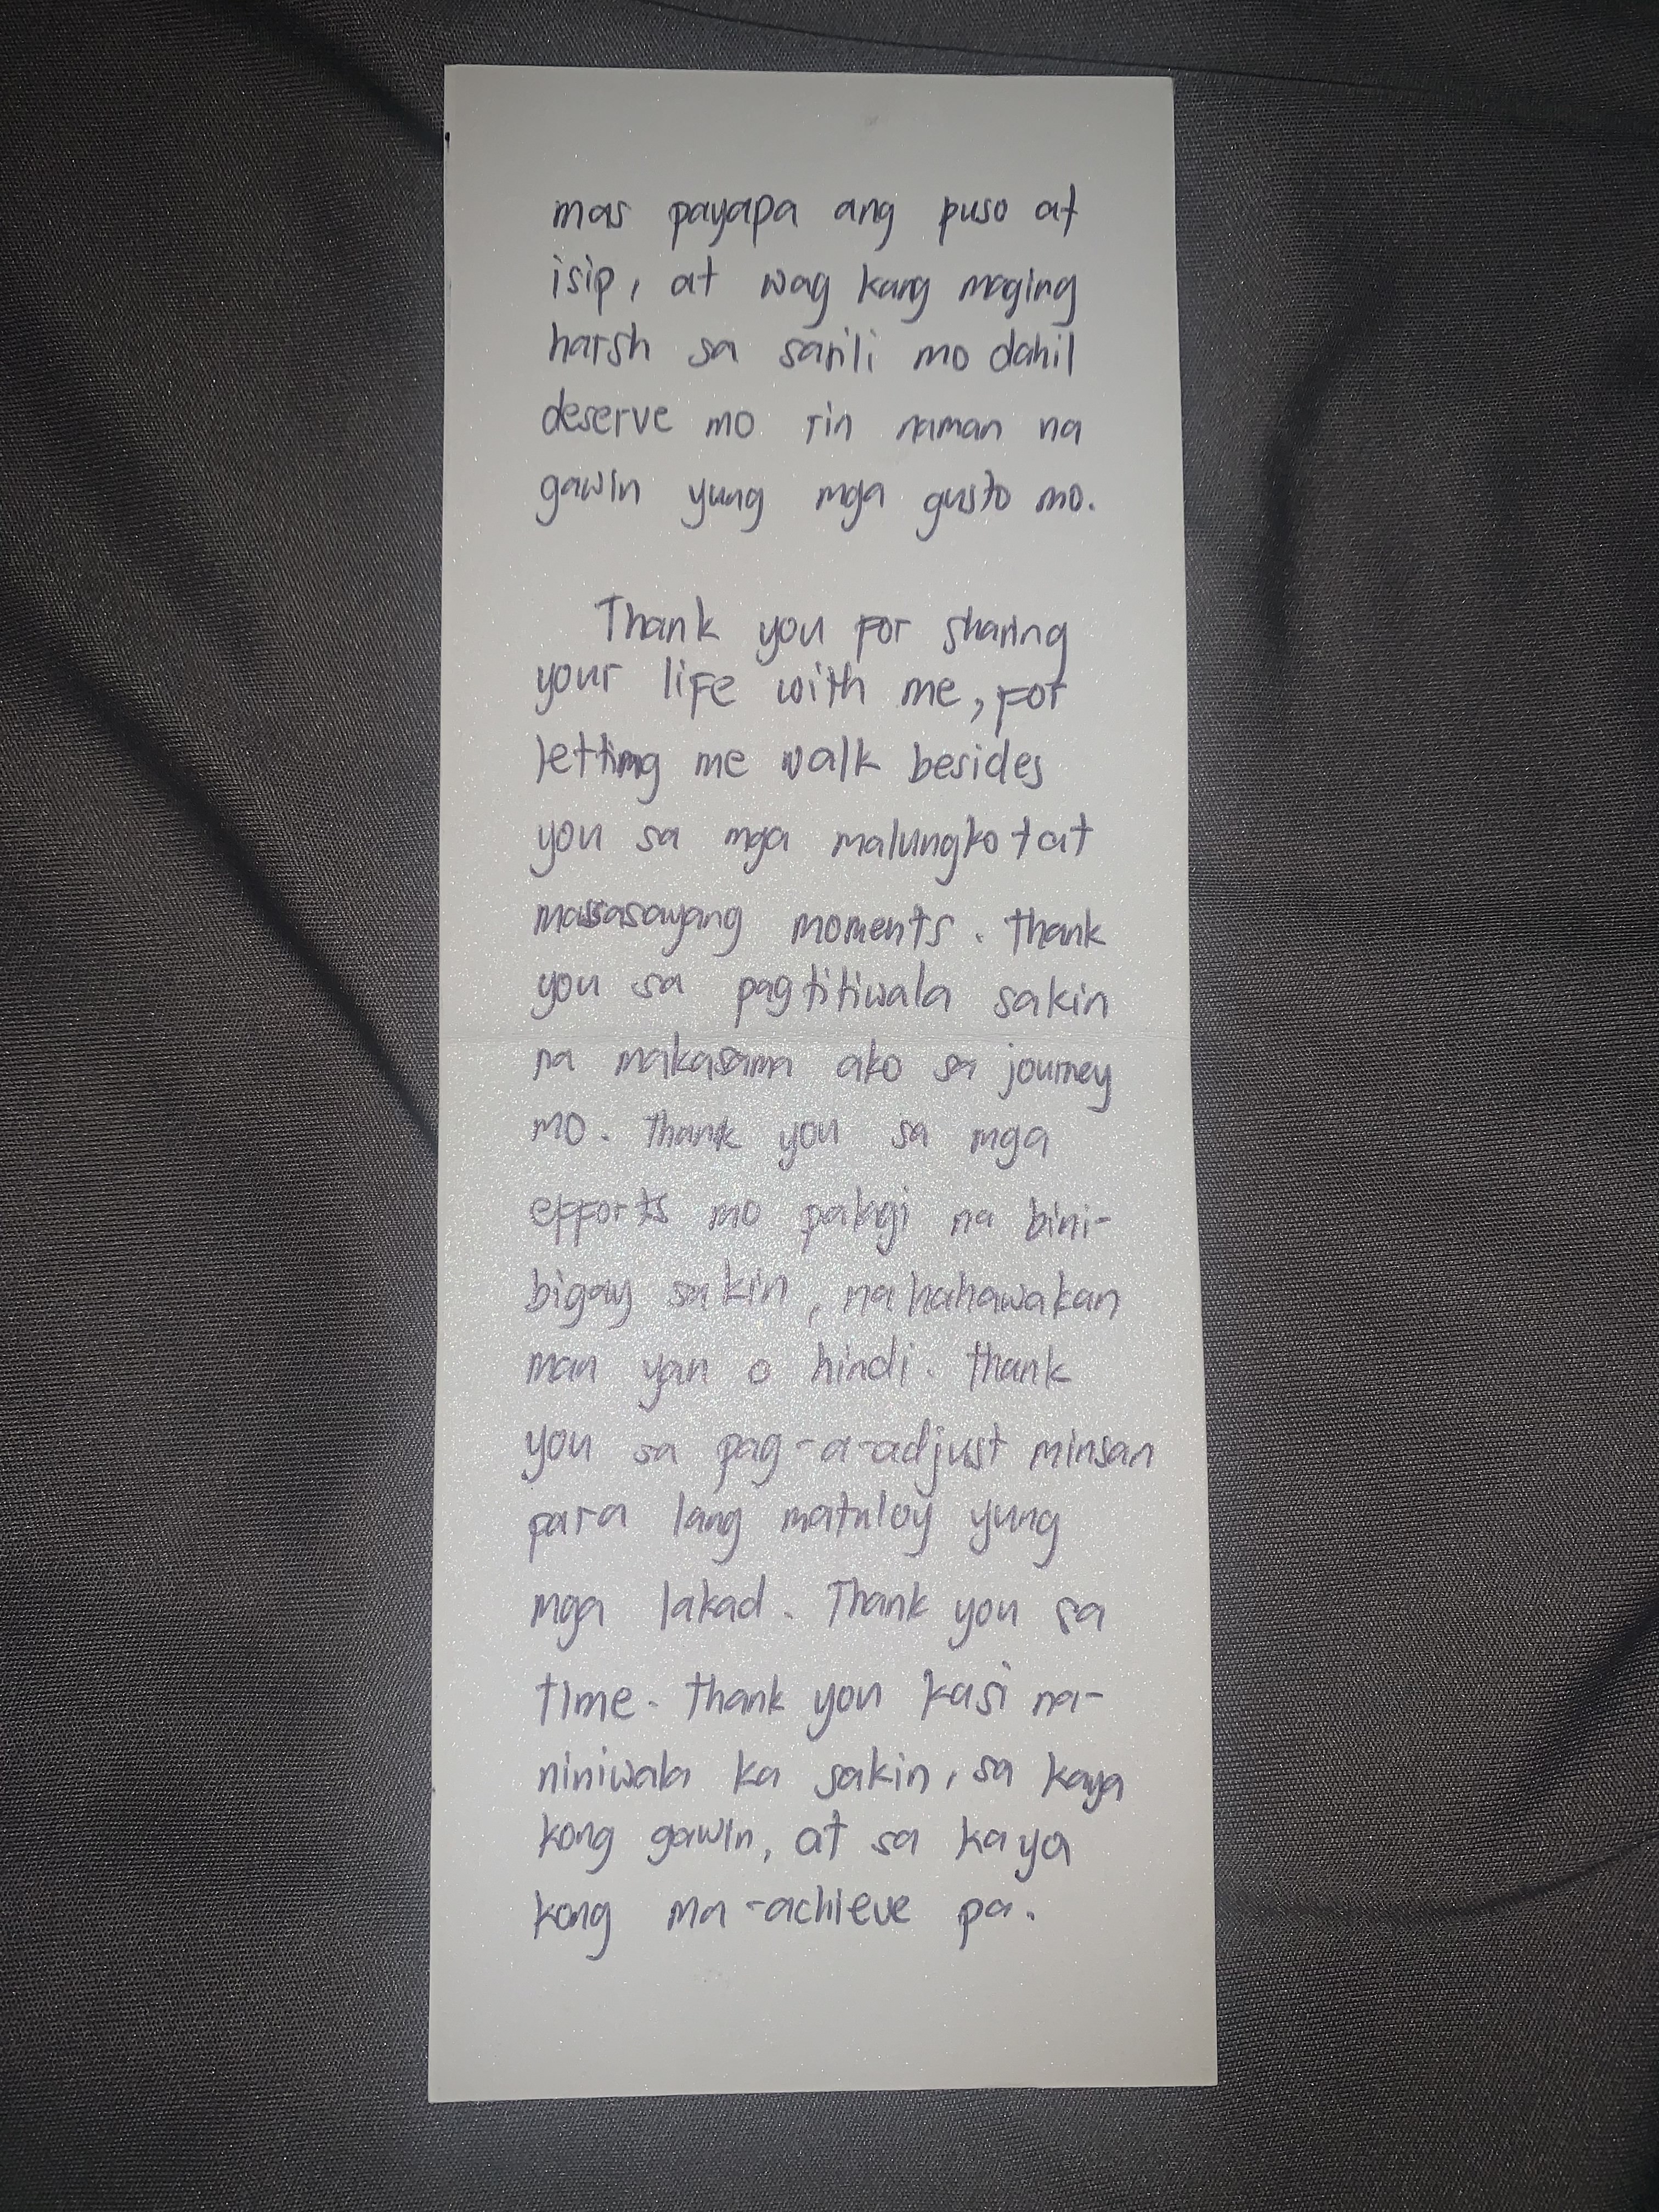 mas payapa ang puso at
isip, at wag kang maging
harsh sa sarili mo dahil
deserve mo rin naman na
gawin yung mga gusto mo.
Thank you for sharing
your life with me, for
letting me walk besides
you sa mga malungkot at
massasayang moments. thank
you sa pagtitiwala sakin
na makasama ako sa journey
mo. thank you sa mga
efforts mo palagi na bini-
bigay sakin, nahahawakan
man yan o hindi. thank
you sa pag-a-adjust minsan
para lang matuloy yung
mga lakad. Thank you sa
time. thank you kasi na-
niniwala ka sakin, sa kaya
kong gawin, at sa kaya
kong ma-achieve pa.